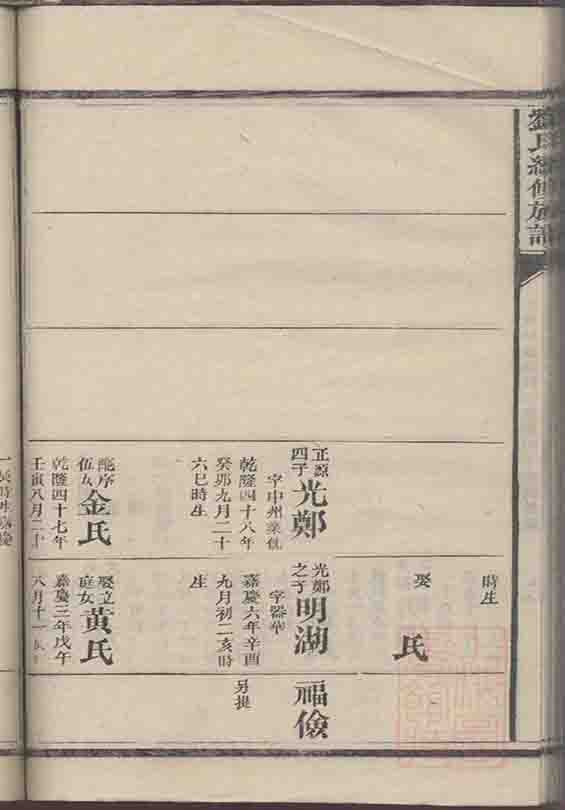 劉氏續修族譜
時生
娶
氏
正源
四子
光鄭
字中州業儒
乾隆四十八年
癸卯九月二十
六巳時生
配序
伍女
金氏
乾隆四十七年
壬寅八月二十
光鄭
之子
明湖
字器華
嘉慶六年辛酉
九月初二亥時
生
娶立
庭女
黃氏
嘉慶三年戊午
八月十一亥
福儉
另提